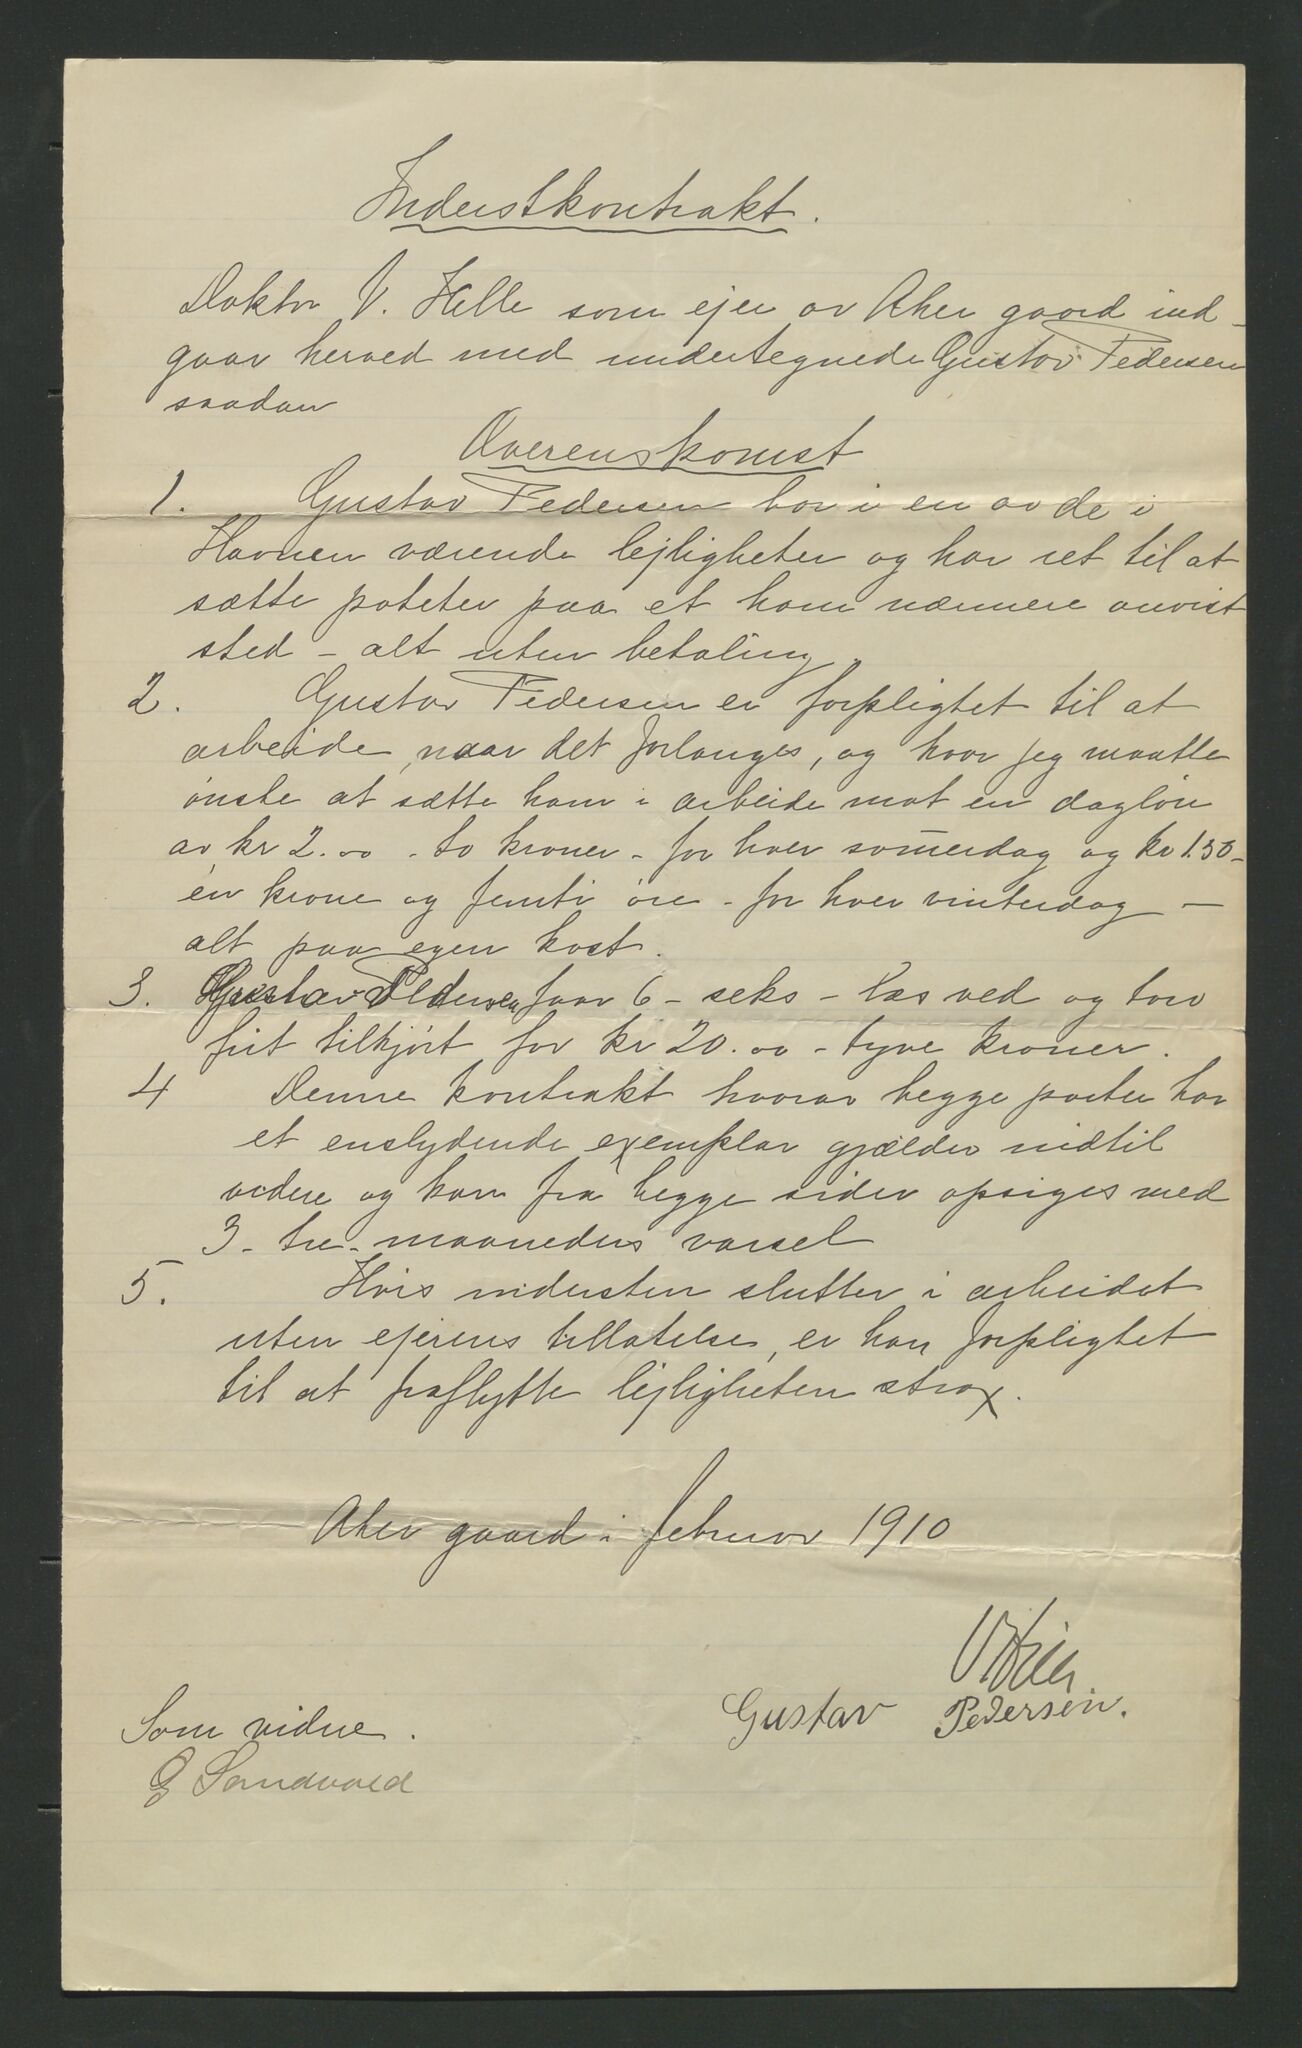 Inderstkontrakt.
Doktor V. Hille som ejer av Aker gaard ind-
gaar herved med undertegnede Gustav Pedersen
saadan
Overenskomst
1. Gustav Pedersen bor i en av de i
Havnen værende lejligheter og har ret til at
sætte poteter paa et ham nærmere anvist
sted - alt uten betaling.
2. Gustav Pedersen er forpligtet til at
arbeide, naar det forlanges, og hvor jeg maatte
ønske at sætte ham i arbeide mot en dagløn
av kr 2.00 - to kroner - for hver som̄erdag og kr 1.50 -
én krone og femti øre - for hver vinterdag -
alt paa egen kost.
3. Gustav Pedersen faar 6 - seks - læs ved og torv
frit tilkjørt for kr 20.00 - tyve kroner.
4 Denne kontrakt hvorav begge parter har
et enslydende exemplar gjælder indtil
videre og kan fra begge sider opsiges med
3 - tre - maaneders varsel
5. Hvisindersten slutter i arbeidet
uten ejerens tillatelse, er han forpligtet
til at fraflytte lejligheten strax.
Aker gaard i februar 1910
VHille
Gustav Pedersen.
Som vidne.
G Sandvold